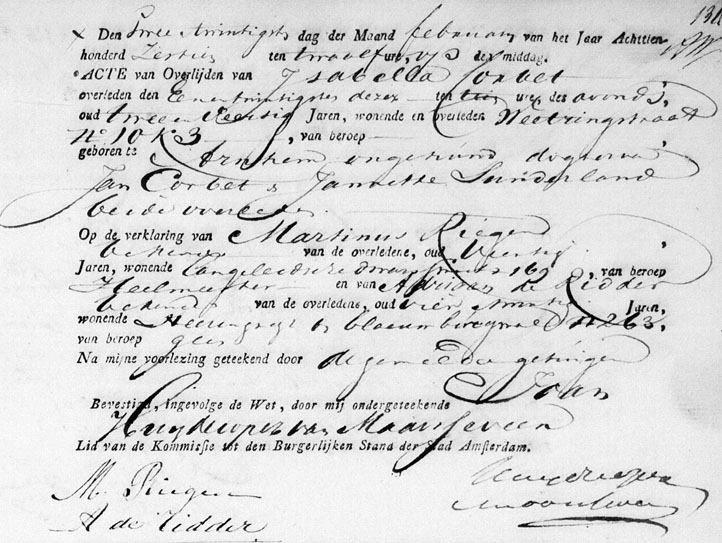 Den Twee & twintigste dag der Maand februarij van het Jaar Achttien-
honderd Zestien ten twaalf ure, op den middag.
ACTE van Overlijden van Isabella Corbet
overleden den Een & twintigsten dezer ten tien ure, des avonds,
oud twee en Jaren, wonende en overleden
No 10 K 3, van beroep
geboren te Arnhem ongehuwd dogter van
Jan Corbet & Jannette Sunderland
beide overleden.
Op de verklaring van Martinus Riegen
bekende van de overledene, oud Veertig
Jaren, wonende van beroep
Heelmeester en van de Ridder
bekende van de overledene, oud vier & twintig Jaren,
wonende Heeregragt bij 263,
van beroep geen
Na mijne voorlezing geteekend door de gemelde getuigen
Joan
Bevestigd, ingevolge de Wet, door mij ondergeteekende
Huydecoper van Maarsseveen
Lid van de Kommissie tot den Burgerlijken Stand der Stad Amsterdam.
M. Riegen
A de Ridder
Huydecoper
Maarsseveen